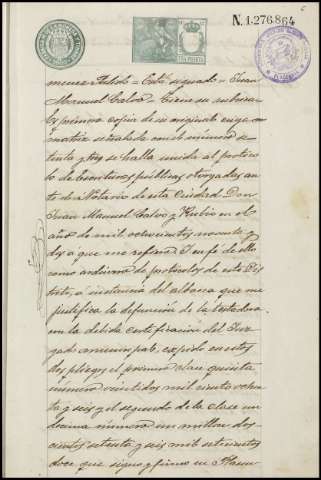 N. 1.276.864
menez Pulido = Está signado = Juan
Manuel Calvo = Tiene su rúbrica
Es primera copia de su original cuya
matriz señalada con el número se
tenta y tres se halla unida al protoco
lo de Escrituras públicas otorgadas an
te el Notario de esta Ciudad Don
Juan Manuel Calvo y Rubio en el
año de mil ochocientos noventa y
dos á que me refiero. Y en fé de ello
como archivero de protocolos de este Dis
trito, á instancia del albacea que me
justifica la defunción de la testadora
con la debida certificación del Juz
gado municipal, expido en estos
dos pliegos el primero clase quinta
número veintidos mil ciento ochen
ta y seis y el segundo de la clase un
decima número un millon dos
cientos setenta y seis mil setecientos
doce que signo y firmo en Plasen